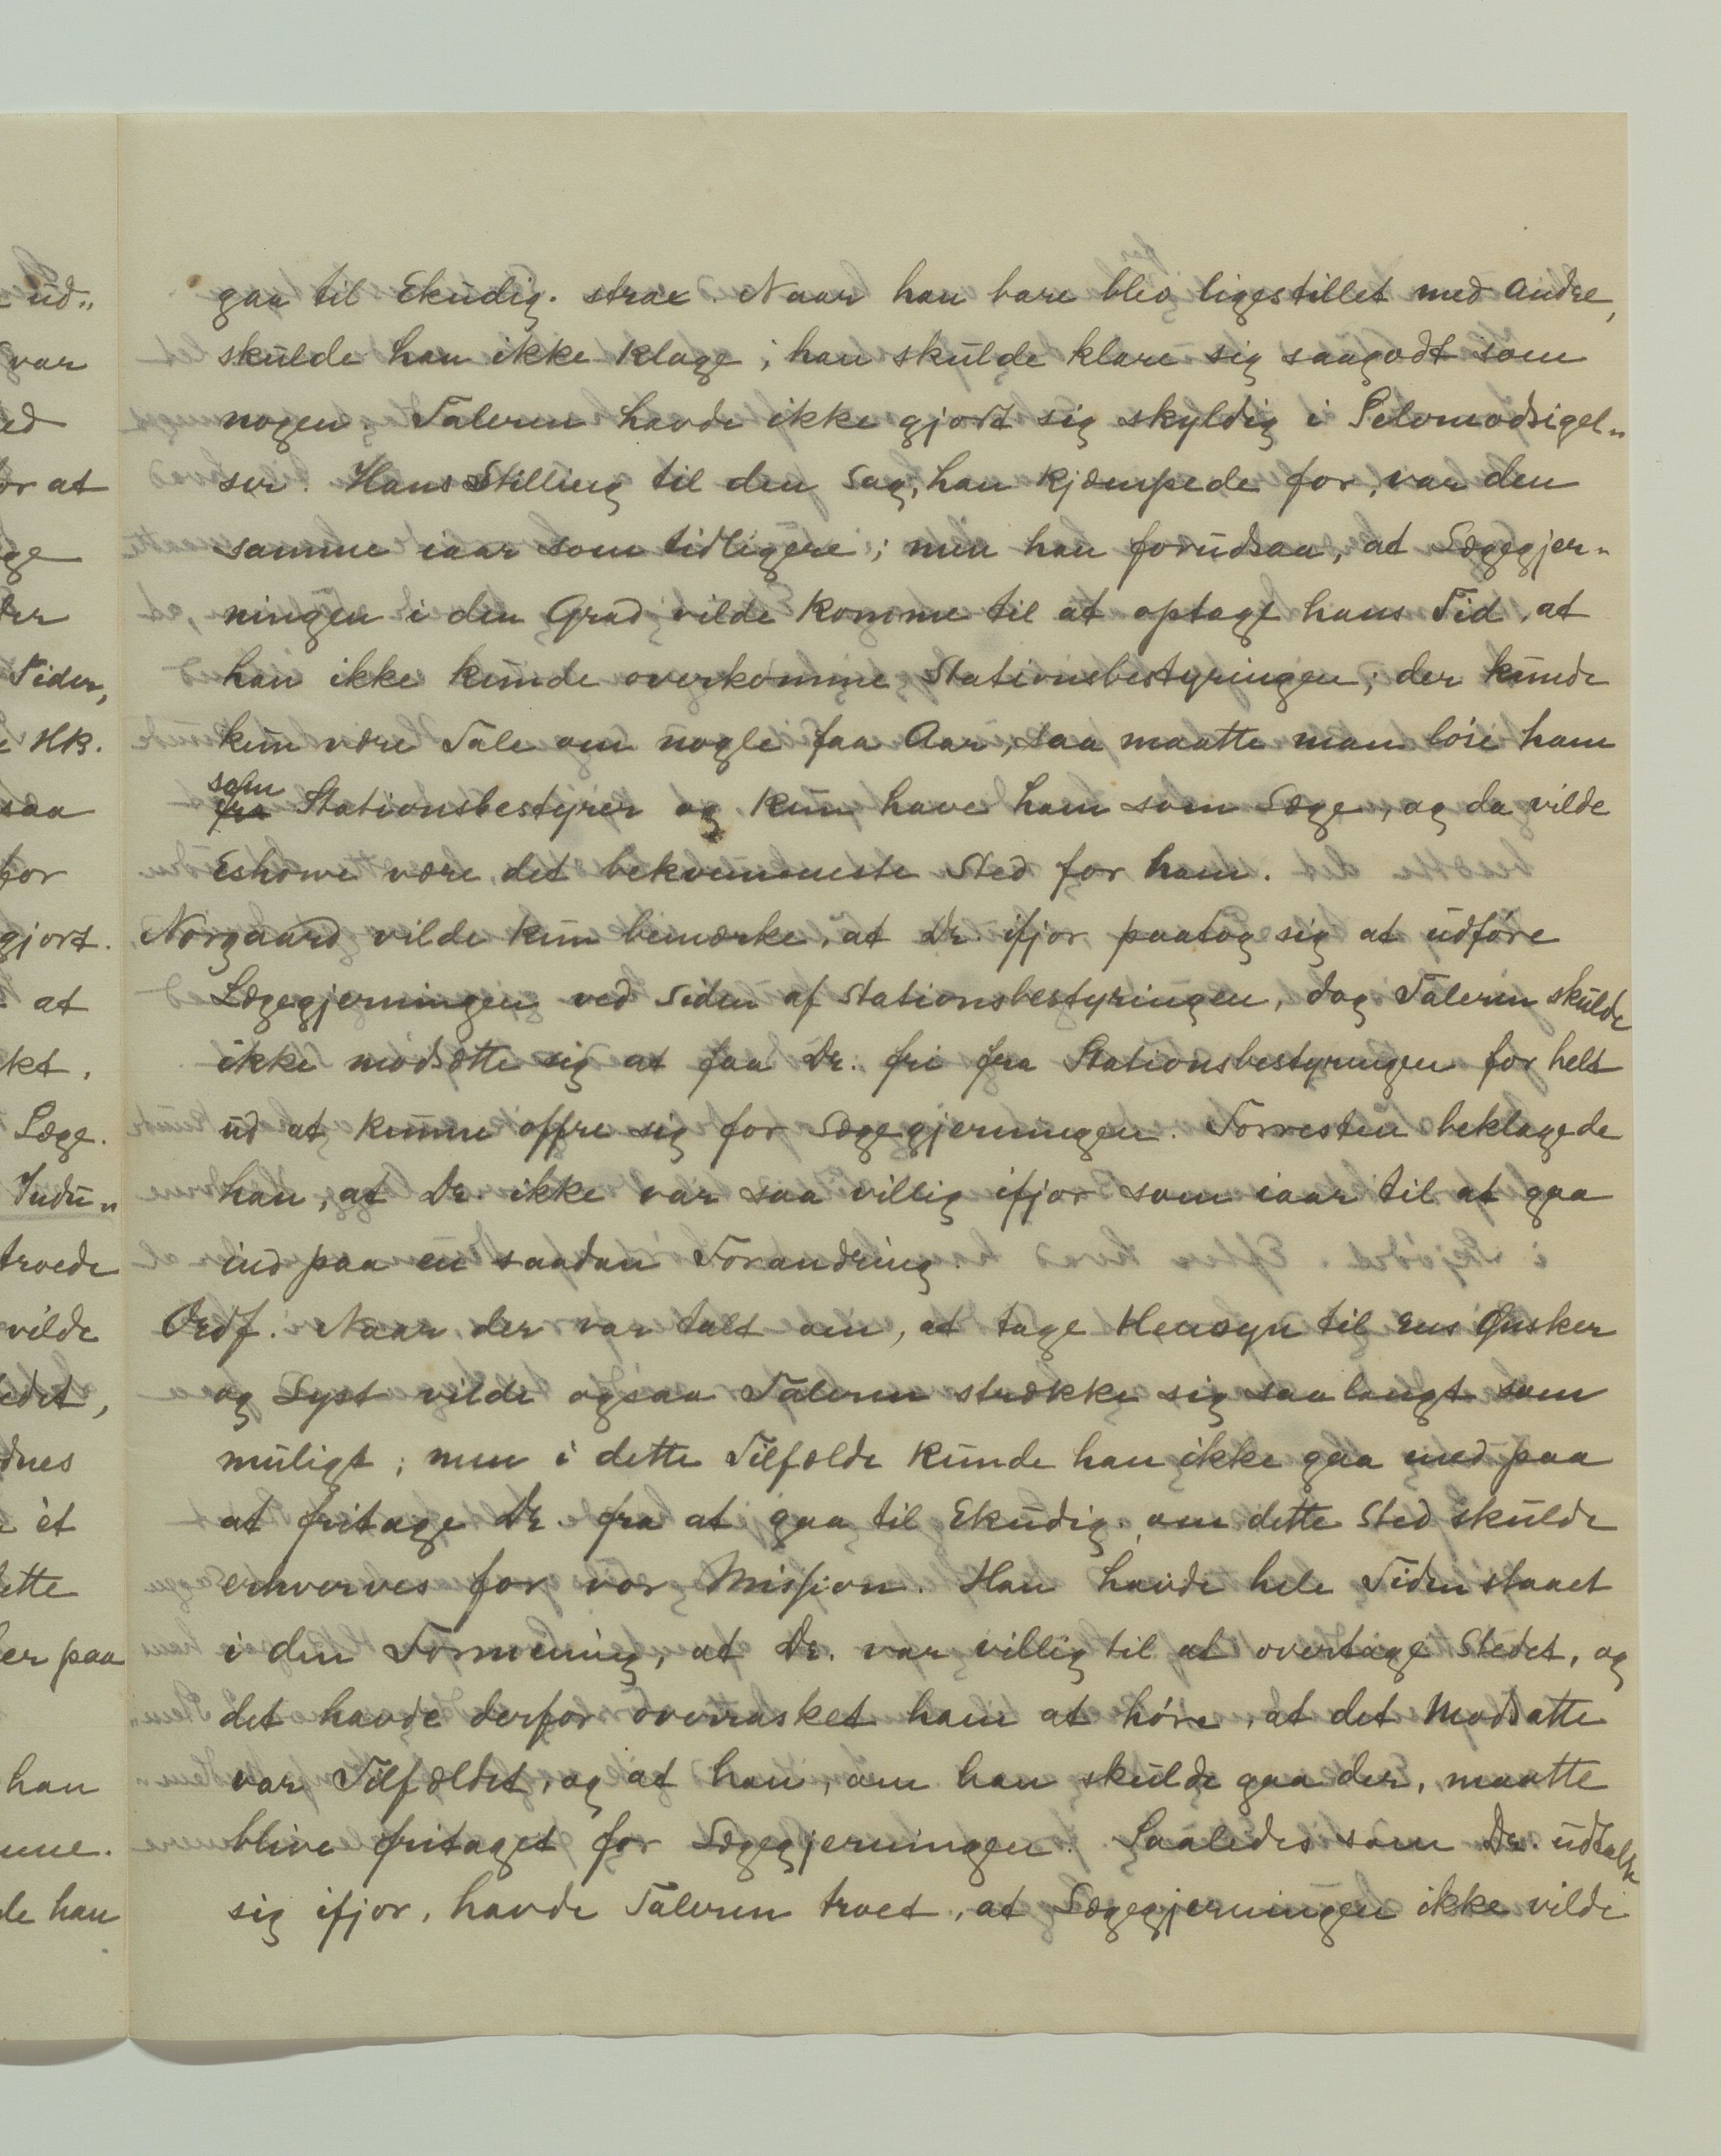 ud„
var
ed
or at
ge
der
Tiden,
e HK.
saa
for
gjort.
at
kt,
Læge.
Indu„
troede
vilde
edet,
dnes
èt
ette
er paa
han
nne.
de han
gaa til Ekudig. strax. Naar han bare blev ligestillet med Andre,
skulde han ikke klage; han skulde klare sig saagodt som
nogen. Taleren havde ikke gjort sig skyldig i Selvmodsigel„
ser. Hans Stilling til den Sag, han kjæmpede for, var den
samme iaar som tidligere; men han forudsaa, at Lægegjer„
ningen i den Grad vilde komme til at optage hans Tid, at
han ikke kunde overkomme Stationsbestyringen; der kunde
kun være Tale om nogle faa Aar, saa maatte man löse ham
som
fra Stationsbestyrer og kun have ham som Læge, og da vilde
Eshowe være det bekvemmeste Sted for ham.
Norgaard vilde kun bemærke, at Dr. ifjor paatog sig at udföre
Lægegjerningen ved Siden af Stationsbestyringen, dog Taleren skulde
ikke modsætte sig at faa Dr. fri fra Stationsbestyringen for helt
ud at kunne offre sig for Lægegjerningen. Forresten beklagede
han, at Dr. ikke var saa villig ifjor som iaar til at gaa
ind paa en saadan Forandring.
Ordf. Naar der var talt om, at tage Hensyn til Ens Ønsker
og Lyst vilde ogsaa Taleren strække sig saa langt som
muligt; men i dette Tilfælde kunde han ikke gaa med paa
at fritage Dr. fra at gaa til Ekudig. om dette Sted skulde
erhverves for vor Mission. Han havde hele Tiden staaet
i den Formening, at Dr. var villig til at overtage Stedet, og
det havde derfor overrasket ham at höre, at det Modsatte
var Tilfældet, og at han, om han skulde gaa der, maatte
blive fritaget for Lægegjerningen. Saaledes som Dr. udtalte
sig ifjor, havde Taleren troet, at Lægegjerningen ikke vilde